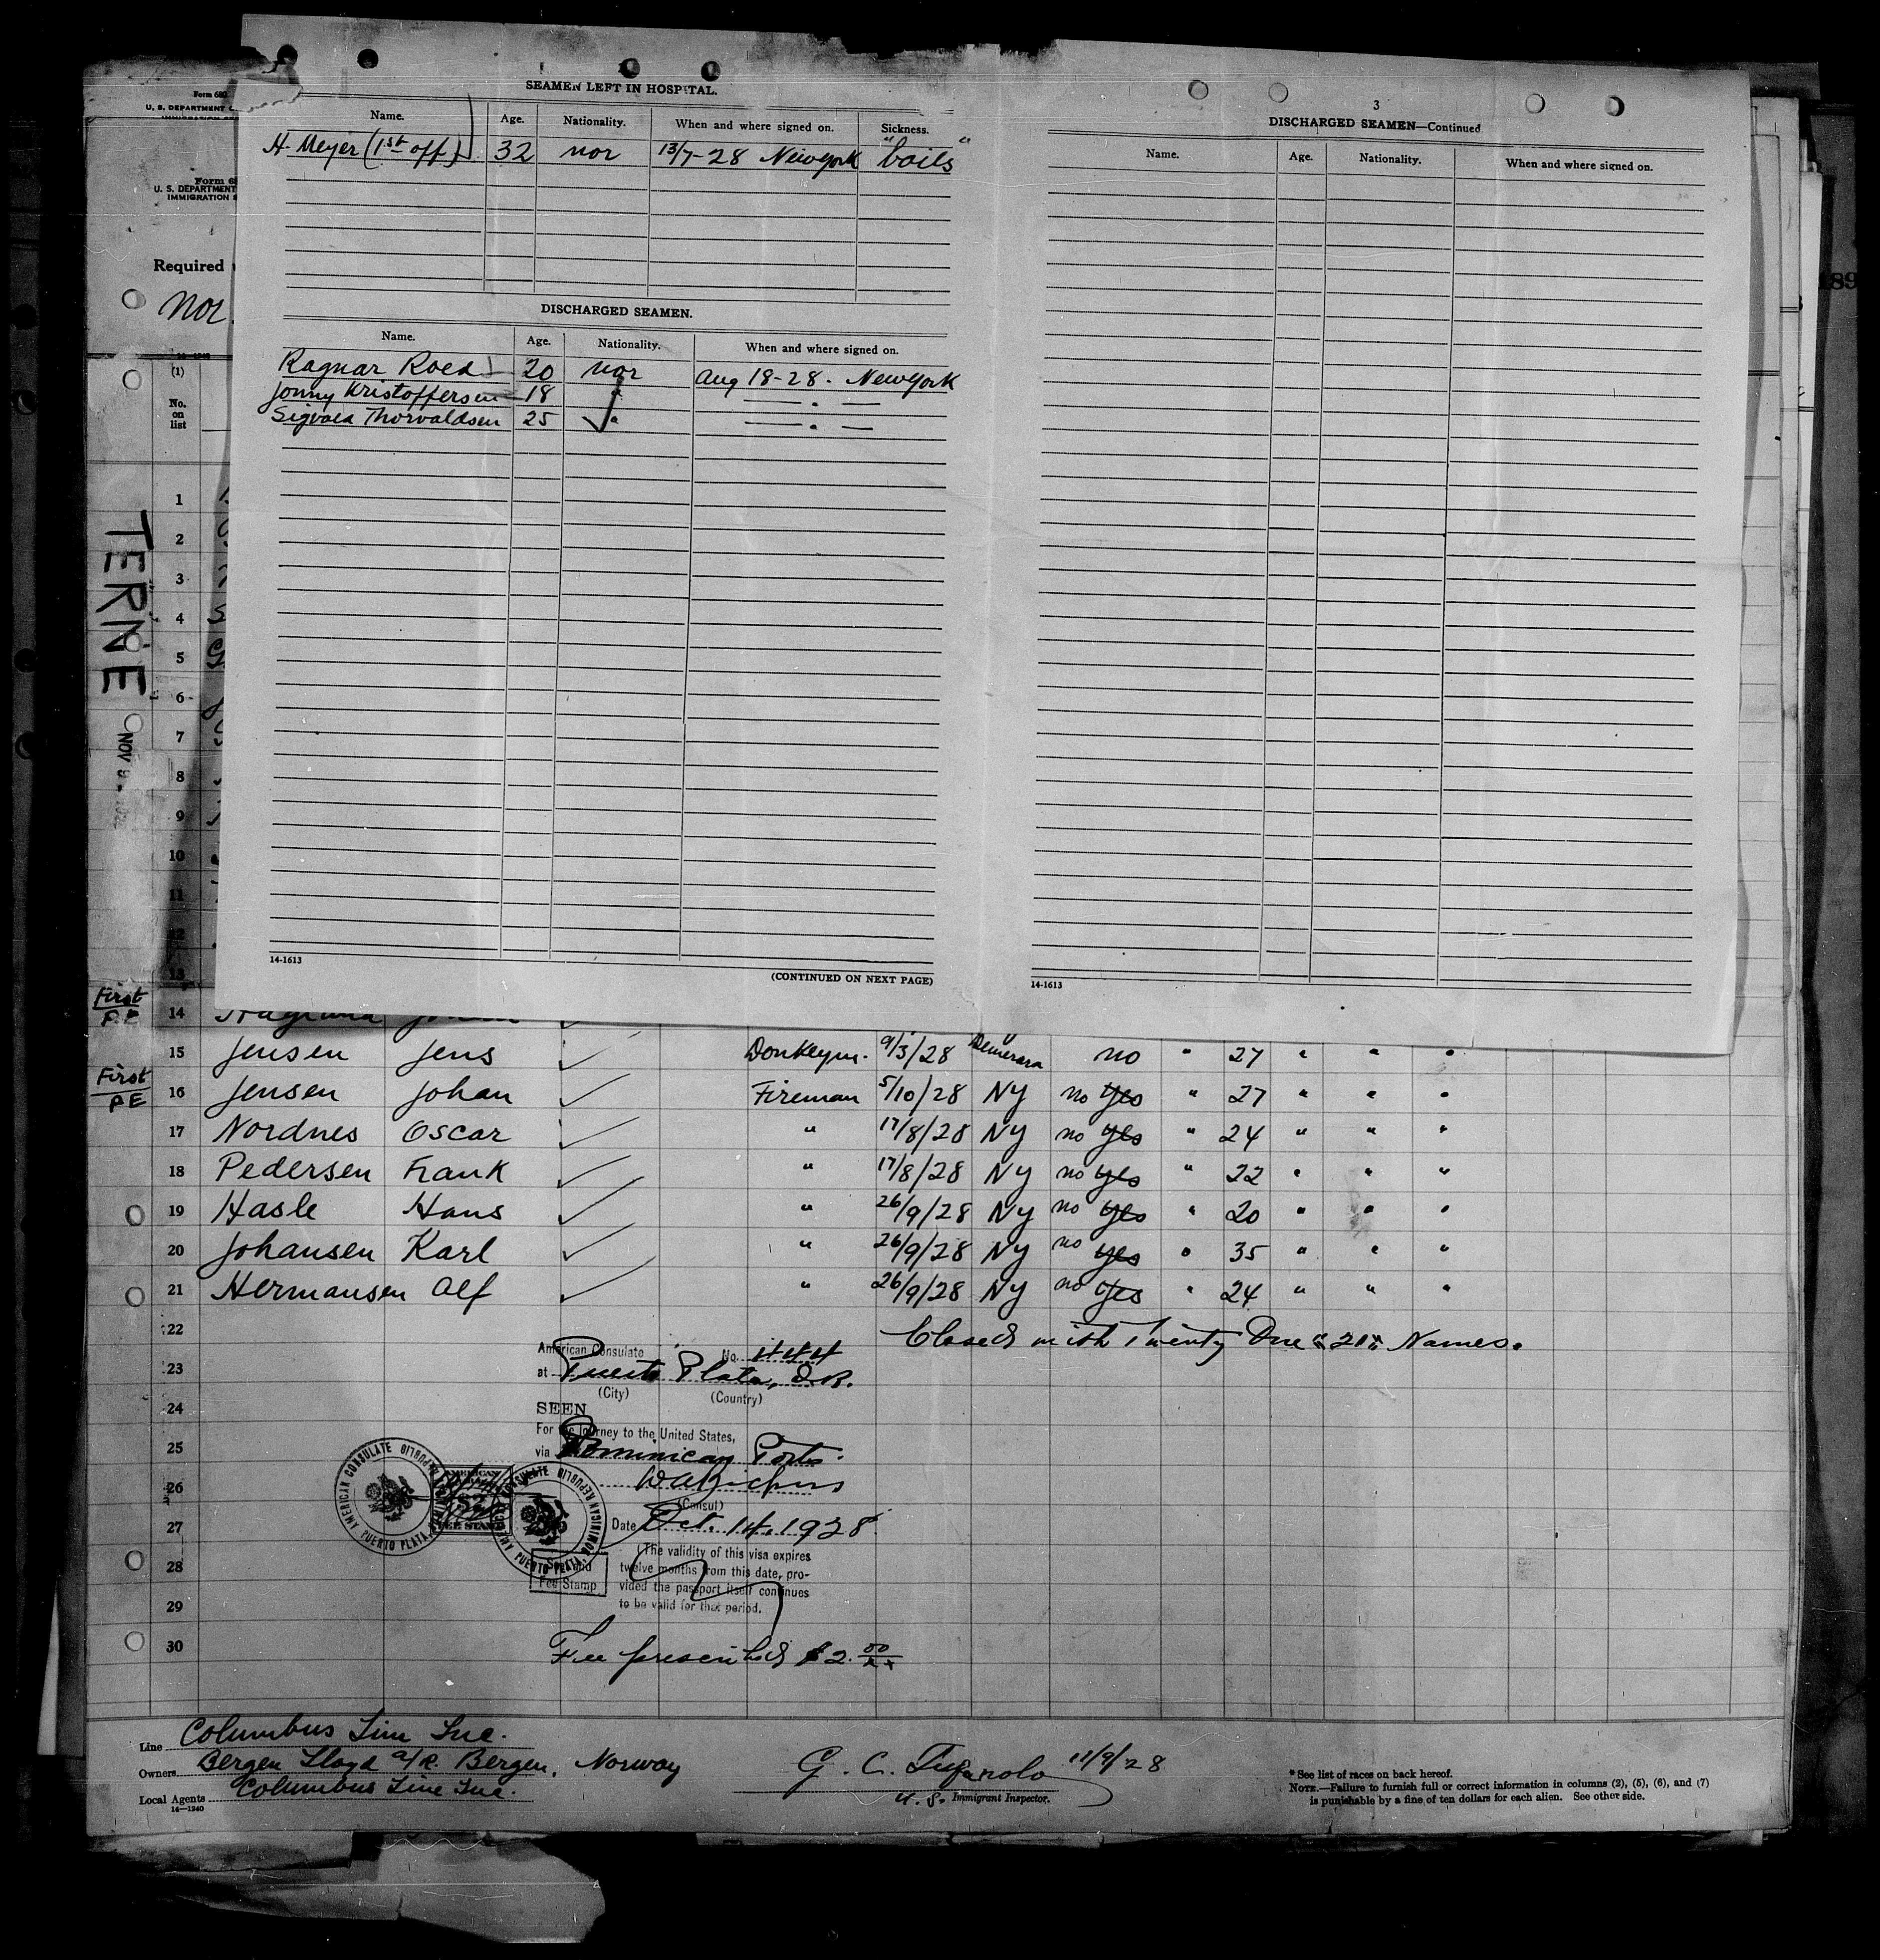 SEAMEN LEFT IN HOSPITAL.
Name. Age. Nationality. When and where signed on. Sickness.
H. Meyer (1st off) 32 nor 13/7-28 New York "boils"
DISCHARGED SEAMEN.
Name. Age. Nationality. When and where signed on.
Ragnar Roed 20 nor Aug 18-28. New York
Jonny Kristoffersen 18 " — " —
Sigvald Thorvaldsen 25 " — " —
14-1613
(CONTINUED ON NEXT PAGE)
3
DISCHARGED SEAMEN—Continued
Name. Age. Nationality. When and where signed on.
14-1613
Form 689
U. S. DEPARTMENT
Form 68
U. S. DEPARTMENT
IMMIGRATION
Required
Nor.
(1)
No.
on
list
TERNE
NOV 9
189
1
2
3
4
5
6
7
8
9
10
11
12
13
First
PE
14
15 Jensen Jens Donkeym. 9/3/28 Demerara no " 27 " " "
First
PE
16 Jensen Johan Fireman 5/10/28 NY no yes " 27 " " "
17 Nordnes Oscar " 17/8/28 NY no yes " 24 " " "
18 Pedersen Frank " 17/8/28 NY no yes " 22 " " "
19 Hasle Hans " 26/9/28 NY no yes " 20 " " "
20 Johansen Karl " 26/9/28 NY no yes " 35 " " "
21 Hermansen Alf " 26/9/28 NY no yes " 24 " " "
22 Closed with Twenty One "21" Names.
American Consulate No. 444
23 at Puerto Plata, D.R.
(City) (Country)
24 SEEN
For the journey to the United States,
25 via Dominican Ports.
26
(Consul)
27 Date Oct. 14, 1928
(The validity of this visa expires
28 twelve months from this date, pro-
vided the passport itself continues
29 to be valid for that period.
AMERICAN CONSULATE PUERTO PLATA, DOMINICAN REPUBLIC
AMERICAN CONSULATE PUERTO PLATA, DOMINICAN REPUBLIC
$2
FEE STAMP
Seal and
Fee Stamp
30 Fee prescribed $2.00
Line Columbus Line Inc.
Owners Bergen Lloyd a/R. Bergen, Norway
Local Agents Columbus Line Inc.
14-1240
G. C. 11/9/28
U. S. Immigrant Inspector.
* See list of races on back hereof.
NOTE.—Failure to furnish full or correct information in columns (2), (5), (6), and (7)
is punishable by a fine of ten dollars for each alien. See other side.